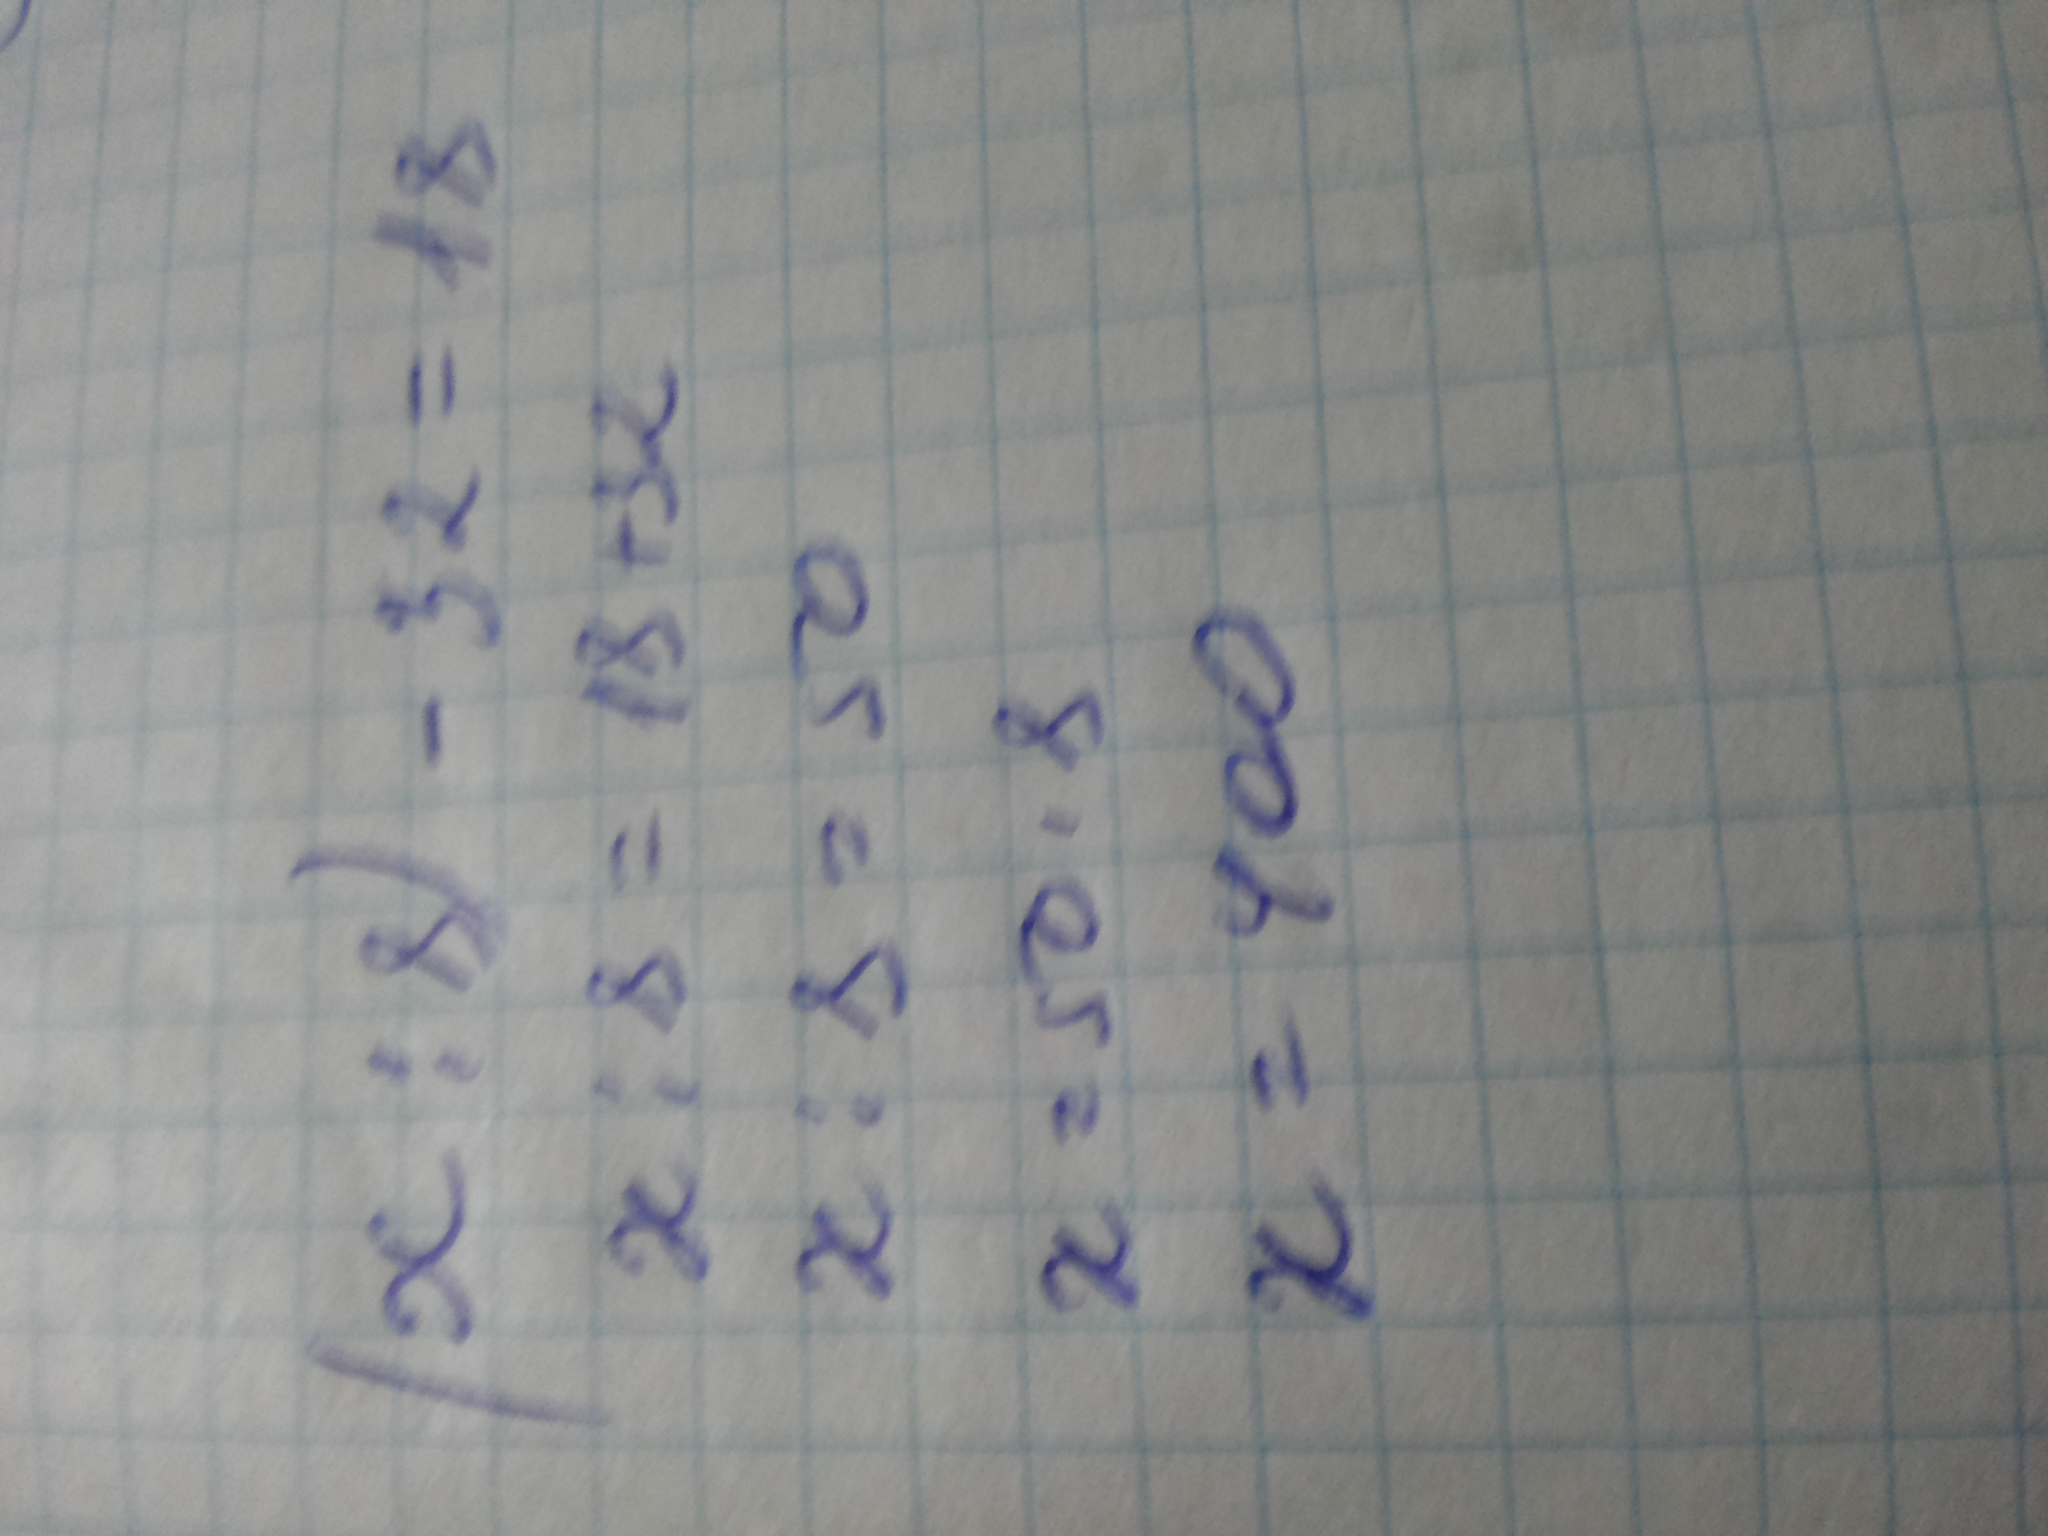 (x : 8) - 32 = 18
x : 8 = 18 + 32
x : 8 = 50
x = 50 · 8
x = 400